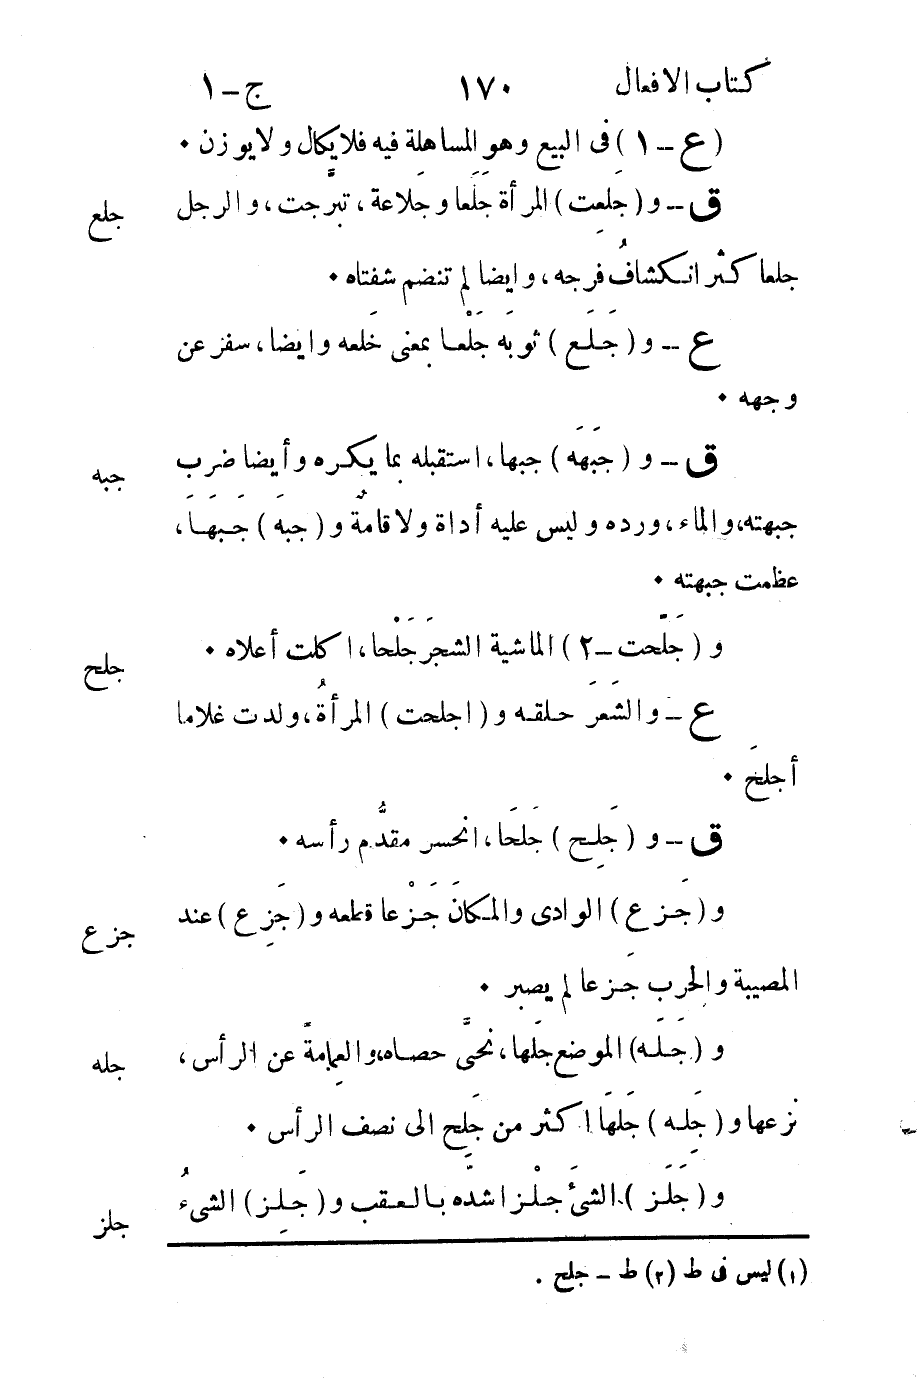 كتاب الافعال ١٧٠ ج – ١
(ع – ١) فى البيع وهو المساهلة فيه فلا يكال ولا يوزن •
ق – و (جَلِعت) المرأة جَلَعا وجَلاعة، تبرَّجت، والرجل جلع
جلعا كثُر انكشافُ فرجه، وايضا لم تنضم شفتاه •
ع – و (جَلَع) ثوبَه جَلْعا بمعنى خَلعه وايضا، سفر عن
وجهه •
ق – و (جَبَهَه) جبها، استقبله بما يكره وأيضا ضرب جبه
جبهته، والماء، ورده وليس عليه أداة ولا قامةٌ و (جبِهَ) جَبَهَا،
عظمت جبهته •
و (جَلَّحت – ٢) الماشية الشجَرَ جَلْحا، اكلت أعلاه • جلح
ع – والشَعَرَ حلقه و (اجلحت) المرأةُ، ولدت غلاما
أجلحَ •
ق – و (جَلِح) جَلَحَا، انحسر مقدَّم رأسه •
و (جَزع) الوادى والمكانَ جَزْعا قطعه و (جَزِع) عند جزع
المصيبة والحرب جَزعا لم يصبر •
و (جَلَه) الموضع جَلْها، نحَّى حصاه، والعِمامةَ عن الرأس، جله
نزعها و (جَلِه) جَلَهَا اكثر من جَلِح الى نصف الرأس •
و (جَلَز) الشىءَ جلْزا شدَّه بالعقب و (جَلِز) الشىءُ جلز
(١) ليس فى ط (٢) ط – جلح .